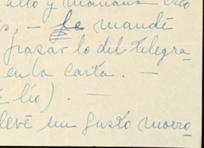 y mañana
s, — le mandé
pasar lo del telegra
en la carta. —
lío). —
levé un gusto morro